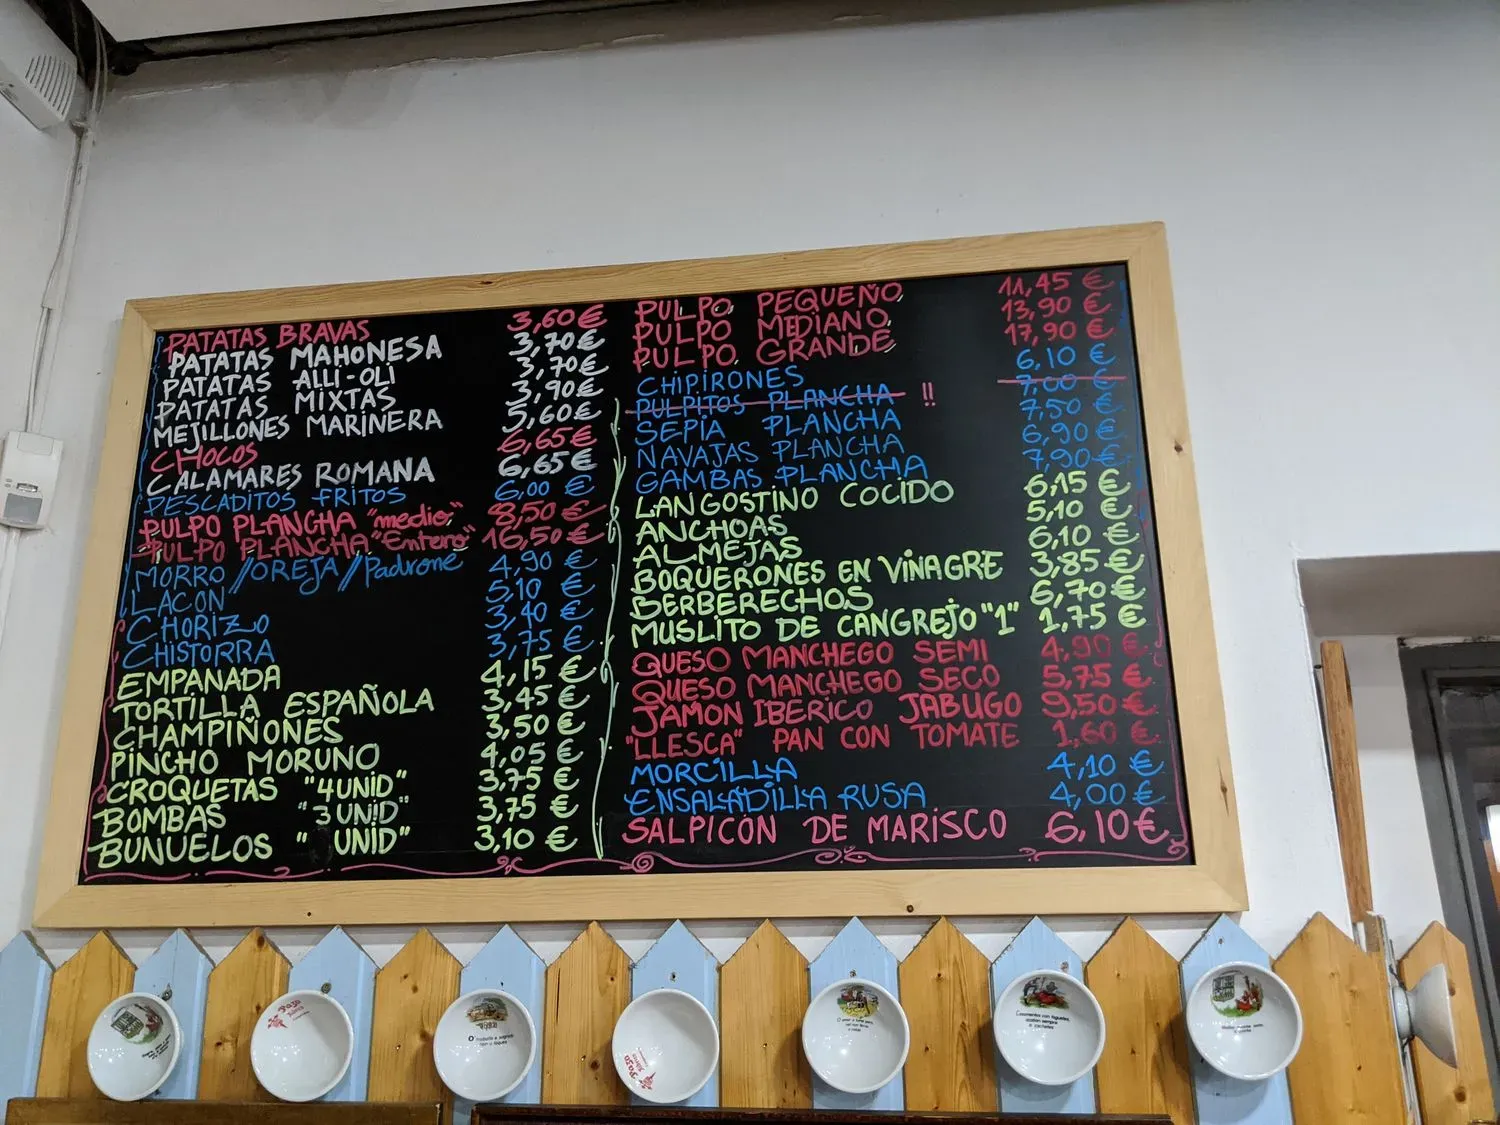 PATATAS BRAVAS 3,60€
PATATAS MAHONESA 3,70€
PATATAS ALLI-OLI 3,70€
PATATAS MIXTAS 3,90€
MEJILLONES MARINERA 5,60€
CHOCOS 6,65€
CALAMARES ROMANA 6,65€
PESCADITOS FRITOS 6,00 €
PULPO PLANCHA "medio" 8,50€
PULPO PLANCHA "Entero" 16,50€
MORRO // OREJA // Padrone 4,90 €
LACON 5,10 €
CHORIZO 3,40 €
CHISTORRA 3,75 €
EMPANADA 4,15 €
TORTILLA ESPAÑOLA 3,45 €
CHAMPIÑONES 3,50 €
PINCHO MORUNO 4,05 €
CROQUETAS "4UNID" 3,75 €
BOMBAS "3 UNID" 3,75 €
BUNUELOS " UNID" 3,10 €
PULPO PEQUEÑO 11,45 €
PULPO MEDIANO 13,90 €
PULPO GRANDE 17,90 €
CHIPIRONES 6,10 €
PULPITOS PLANCHA !! 7,00 €
SEPIA PLANCHA 7,50 €
NAVAJAS PLANCHA 6,90 €
GAMBAS PLANCHA 7,90 €
LANGOSTINO COCIDO 6,15 €
ANCHOAS 5,10 €
ALMEJAS 6,10 €
BOQUERONES EN VINAGRE 3,85 €
BERBERECHOS 6,70 €
MUSLITO DE CANGREJO "1" 1,75 €
QUESO MANCHEGO SEMI 4,90 €
QUESO MANCHEGO SECO 5,75 €
JAMON IBERICO JABUGO 9,50 €
"LLESCA" PAN CON TOMATE 1,60 €
MORCILLA 4,10 €
ENSALADILLA RUSA 4,00 €
SALPICON DE MARISCO 6,10 €